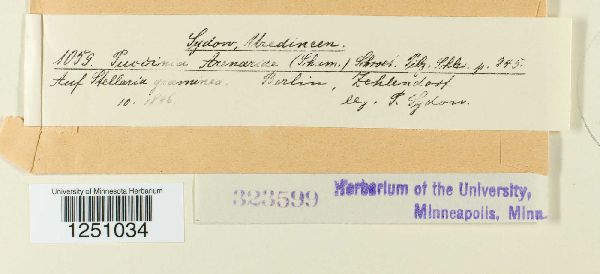 Sydow, Uredineen.
1059. Puccinia Arenariae (Schum.) Schroet. Pilz. Schles. p. 345.
Auf Stellaria graminea. Berlin, Zehlendorf.
10. 1896. leg. P. Sydow.
University of Minnesota Herbarium
1251034
323599
Herbarium of the University,
Minneapolis, Minn.